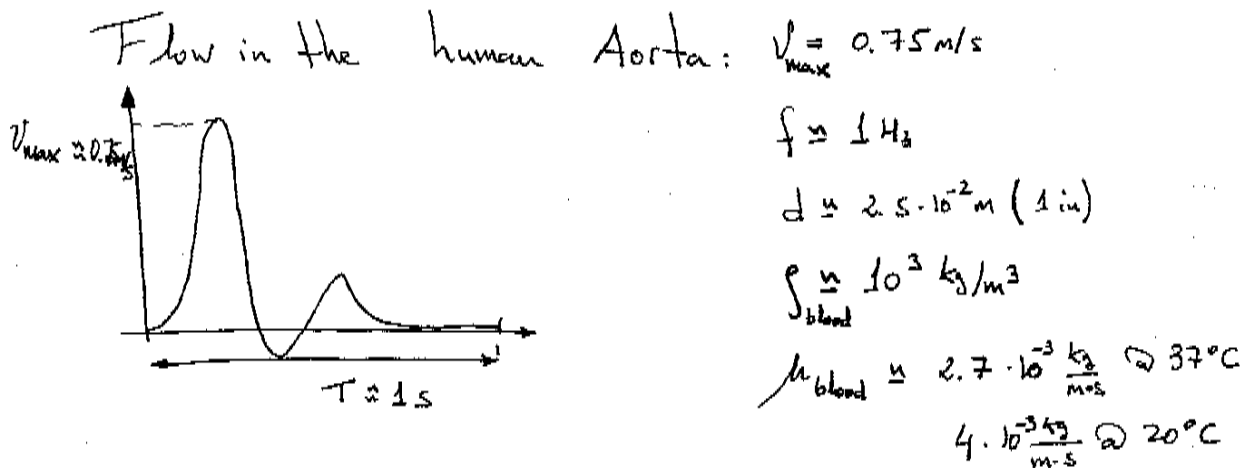 Flow in the human Aorta: V_max = 0.75 m/s
V_max ≈ 0.75 m/s
f ≈ 1 Hz
d ≈ 2.5·10⁻² m (1 in)
ρ_blood ≈ 10³ kg/m³
μ_blood ≈ 2.7·10⁻³ kg/m·s @ 37°C
4·10⁻³ kg/m·s @ 20°C
T ≈ 1 s